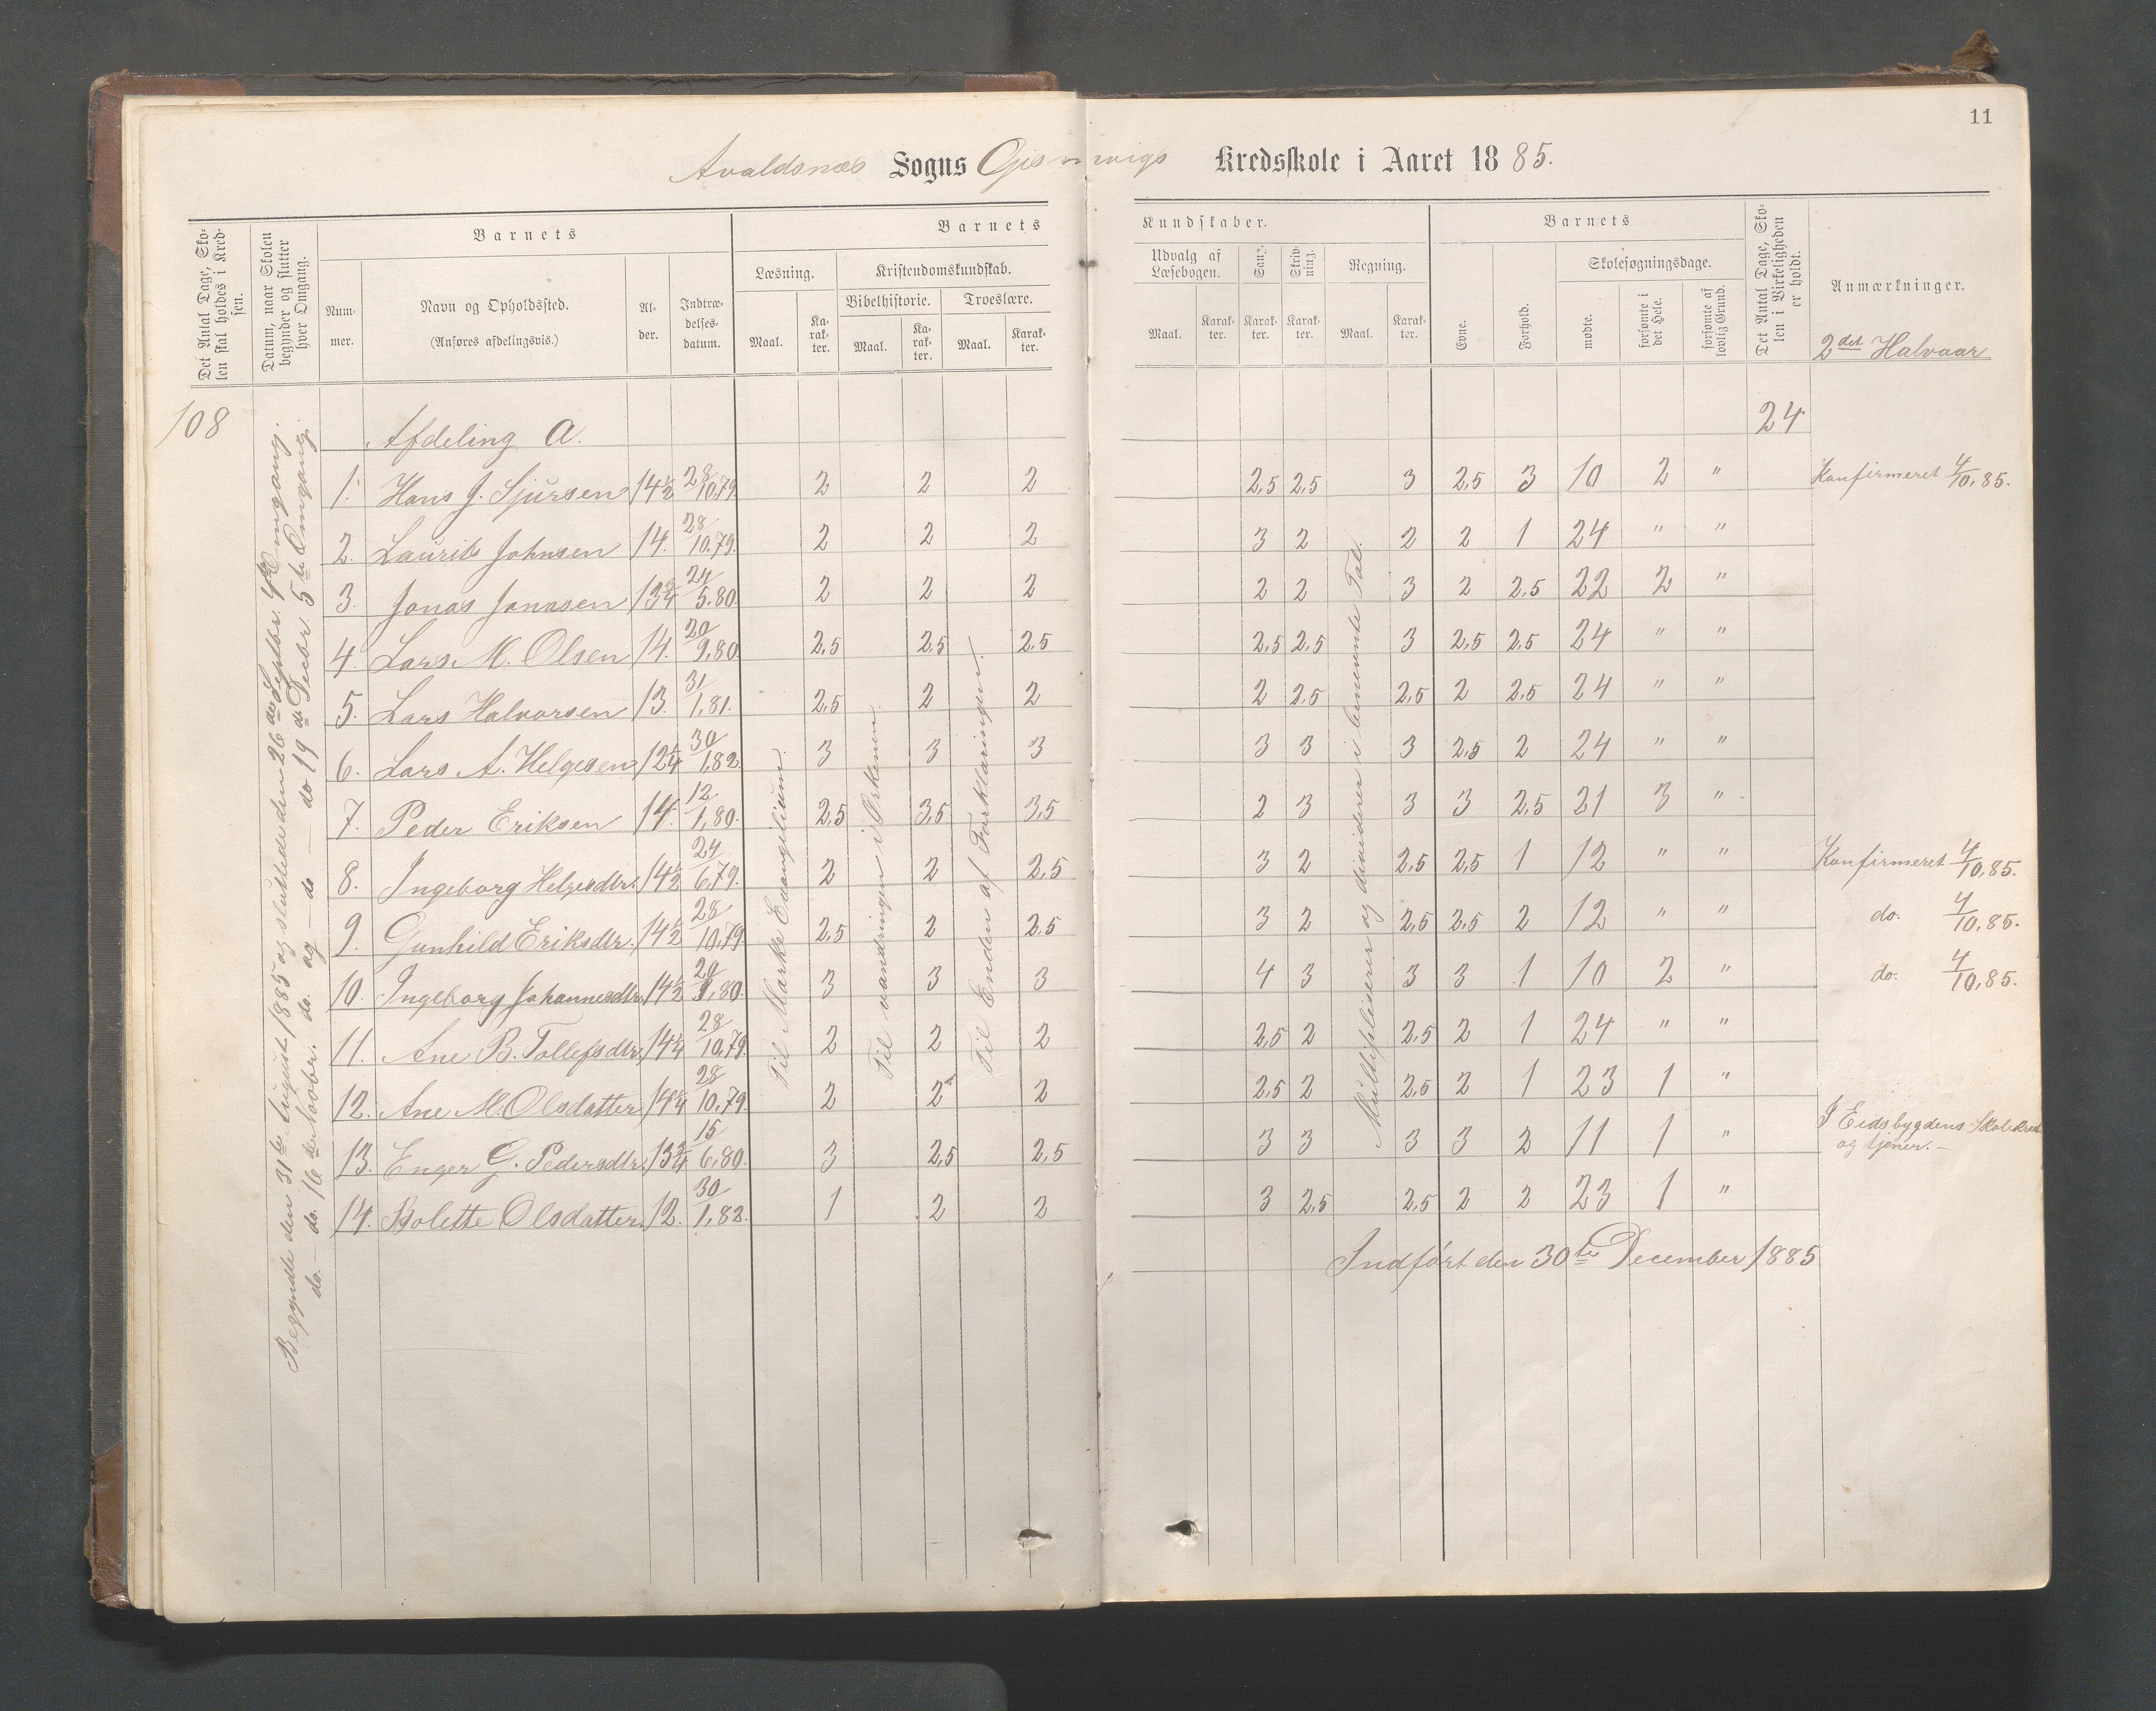 11
Avaldsnæs Sogns Gismarvigs Kredsskole i Aaret 1885.
Det Antal Dage, Skolen skal holdes i Kredsen.
Datum, naar Skolen begynder og slutter hver Omgang.
Barnets
Nummer.
Navn og Opholdssted.
(Anføres afdelingsvis.)
Alder.
Indtrædelsesdatum.
Barnets Kundskaber.
Læsning.
Maal.
Karakter.
Kristendomskundskab.
Bibelhistorie.
Maal.
Karakter.
Troeslære.
Maal.
Karakter.
Udvalg af Læsebogen.
Maal.
Karakter.
Sang.
Karakter.
Skrivning.
Karakter.
Regning.
Maal.
Karakter.
Barnets
Evne.
Forhold.
Skolesøgningsdage.
mødte.
forsømte i det Hele.
forsømte af lovlig Grund.
Det Antal Dage, Skolen i Virkeligheden er holdt.
Anmærkninger.
2det Halvaar
108
Begyndte den 31te August 1885 og sluttede den 26de Septbr. 4de Omgang.
do. — do. 16de Novbr. do. og — do — do 19de Decbr. 5te Omgang.
Afdeling A. 24
1. Hans J. Sjursen 14½ 28/10.79. 2 2 2 2,5 2,5 3 2,5 3 10 2 " Konfirmeret 4/10.85.
2. Laurits Johnsen 14. 28/10.79. 2 2 2 3 2 2 2 1 24 " "
3. Jonas Jonasen 13¾ 24/5.80. 2 2 2 2 2 3 2 2,5 22 2 "
4. Lars M. Olsen 14. 20/9.80. 2,5 2,5 2,5 2,5 2,5 3 2,5 2,5 24 " "
5. Lars Halvorsen 13. 31/1.81. 2,5 2 2 2 2,5 2,5 2 2,5 24 " "
6. Lars A. Helgesen 12¼ 30/1.82. 3 3 3 3 3 3 2,5 2 24 " "
7. Peder Eriksen 14. 12/1.80. 2,5 3,5 3,5 2 3 3 3 2,5 21 3 "
8. Ingeborg Helgesdtr. 14½ 24/6.79. 2 2 2,5 3 2 2,5 2,5 1 12 " " Konfirmeret 4/10.85.
9. Gunhild Eriksdtr. 14½ 28/10.79. 2,5 2 2,5 3 2 2,5 2,5 2 12 " " do. 4/10.85.
10. Ingeborg Johannesdtr. 14½ 3 3 3 4 3 3 3 1 10 2 " do. 4/10.85.
11. Ane B. Tollefsdtr. 14¼ 28/10.79. 2 2 2 2,5 2 2,5 2 1 24 " "
12. Ane M. Olsdatter 14¼ 28/10.79. 2 2 2 2,5 2 2,5 2 1 23 1 "
13. Enger G. Pedersdtr. 13¾ 15/6.80. 3 2,5 2,5 3 3 3 3 2 11 1 " I Eidsbygdens Skolekreds
og tjener.—
14. Bolette Olsdatter. 12. 30/1.82. 1 2 2 3 2,5 2,5 2 2 23 1 "
Til Marke Evangelium.
Til vandringen i Ørkenen.
Til Enden af Forklaringen.
Multiplicerer og dividerer i benævnte Tal.
Indført den 30te December 1885